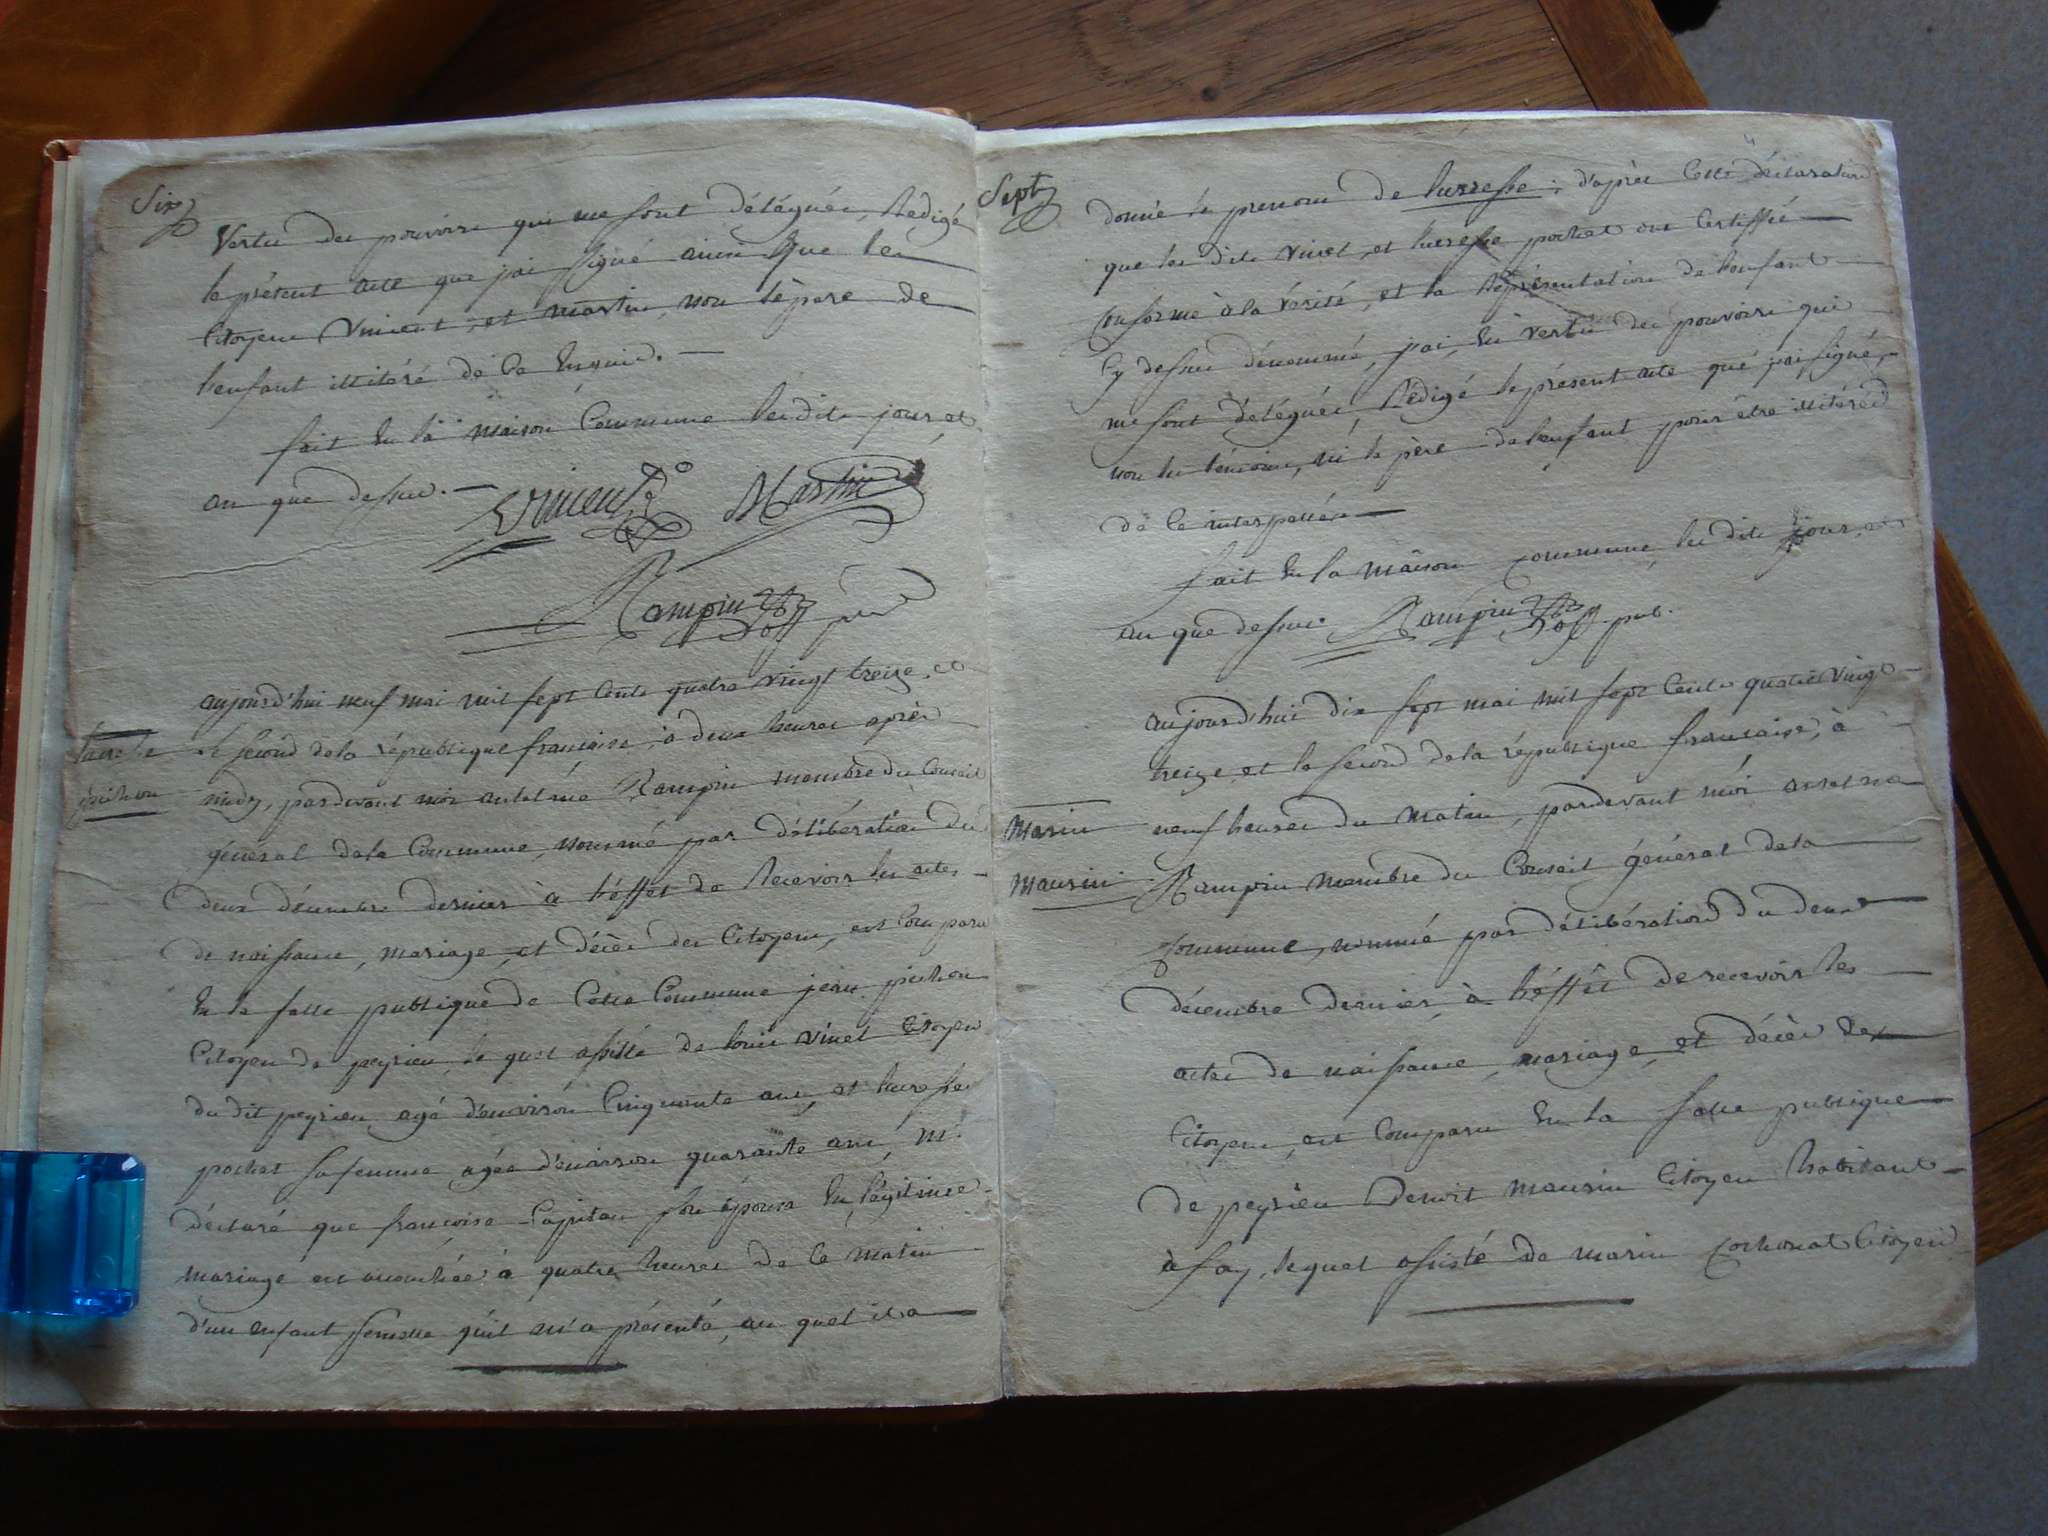 Six
Vertu des pouvoirs qui me sont délégués, Rédigé
le présent acte que j'ai signé ainsi que les
Citoyens Vincent, et martin, non le père de
l'enfant illitéré de ce Enquis.
fait En la maison Commune lesdits jour, et
an que dessus.
Vincent Martin
Rampin off. pub.
aujourd'hui neuf mai mil sept cents quatre vingt treize, et
lucresse
le second dela république française, à deux heures après
pichon
midy, pardevant moi antelme Rampin membre du Conseil
général dela Commune, nommé par délibération du
deux décembre dernier à l'éffet de Recevoir les actes
de naissance, mariage, et décès des Citoyens, est Comparu
En la salle publique de Cette Commune jean pichon
Citoyen de peyrieu, le quel assisté de louis vinet Citoyen
du dit peyrieu agé d'environ Cinquante ans, et lucresse
pochet sa femme agée d'environ quarante ans, m'a
déclaré que françoise Capitan son épouse En légitime
mariage est accouchée à quatre heures de ce matin
d'un enfant femelle qu'il m'a présenté, au quel il a
Sept
donné le prenom de lucresse ; d'après Cette déclaration
que les dits vinet, et lucresse pochet ont Certiffié
Conforme à la vérité, et la Représentation de l'enfant
Cy dessus dénommé, j'ai, En vertu des pouvoirs qui
me sont délégués Rédigé le présent acte que j'ai signé,
non les témoins, ni le père de l'enfant pour être illitérés
de ce interpellés
fait En la maison commune, les dits jour, et
an que dessus. Rampin off. pub.
aujourd'hui dix sept mai mil sept Cents quatre vingt
treize, et le second de la république française, à
Marin
neuf heures du matin, pardevant moi antelme
Maurin
Rampin Membre du Conseil général dela
Commune, nommé par délibération du deux
décembre dernier, à l'éffet de recevoir les
actes de naissance, mariage, et décès des
Citoyens, est Comparu En la salle publique
de peyrieu Benoit Maurin Citoyen habitant
à fay, lequel assisté de marin Cochonat Citoyen